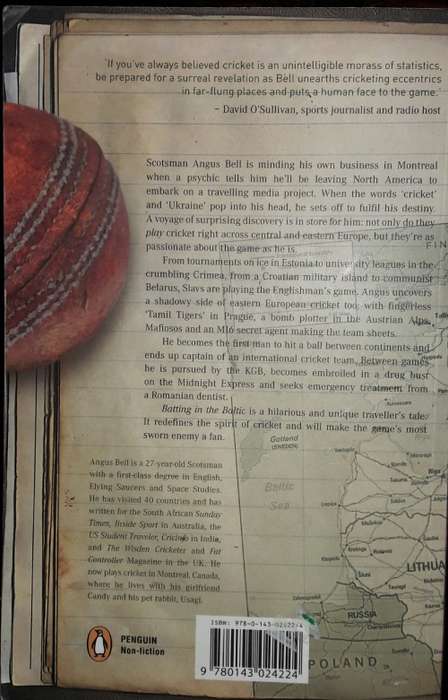 'If you've always believed cricket is an unintelligible morass of statistics,
be prepared for a surreal revelation as Bell unearths cricketing eccentrics
in far-flung places and puts a human face to the game.'
– David O'Sullivan, sports journalist and radio host
Scotsman Angus Bell is minding his own business in Montreal
when a psychic tells him he'll be leaving North America to
embark on a travelling media project. When the words 'cricket'
and 'Ukraine' pop into his head, he sets off to fulfil his destiny.
A voyage of surprising discovery is in store for him: not only do they
play cricket right across central and eastern Europe, but they're as
passionate about the game as he is.
From tournaments on ice in Estonia to university leagues in the
crumbling Crimea, from a Croatian military island to communist
Belarus, Slavs are playing the Englishman's game. Angus uncovers
a shadowy side of eastern European cricket too, with fingerless
'Tamil Tigers' in Prague, a bomb plotter in the Austrian Alps,
Mafiosos and an MI6 secret agent making the team sheets.
He becomes the first man to hit a ball between continents and
ends up captain of an international cricket team. Between games
he is pursued by the KGB, becomes embroiled in a drug bust
on the Midnight Express and seeks emergency treatment from
a Romanian dentist.
Batting in the Baltic is a hilarious and unique traveller's tale.
It redefines the spirit of cricket and will make the game's most
sworn enemy a fan.
Angus Bell is a 27-year-old Scotsman
with a first-class degree in English,
Flying Saucers and Space Studies.
He has visited 40 countries and has
written for the South African Sunday
Times, Inside Sport in Australia, the
US Student Traveler, Cricinfo in India,
and The Wisden Cricketer and Fat
Controller Magazine in the UK. He
now plays cricket in Montreal, Canada,
where he lives with his girlfriend
Candy and his pet rabbit, Usagi.
FIN
Gotland
(SWEDEN)
Baltic
Sea
LITHUA
RUSSIA
POLAND
PENGUIN
Non-fiction
ISBN: 978-0-143-02422-4
9 780143 024224